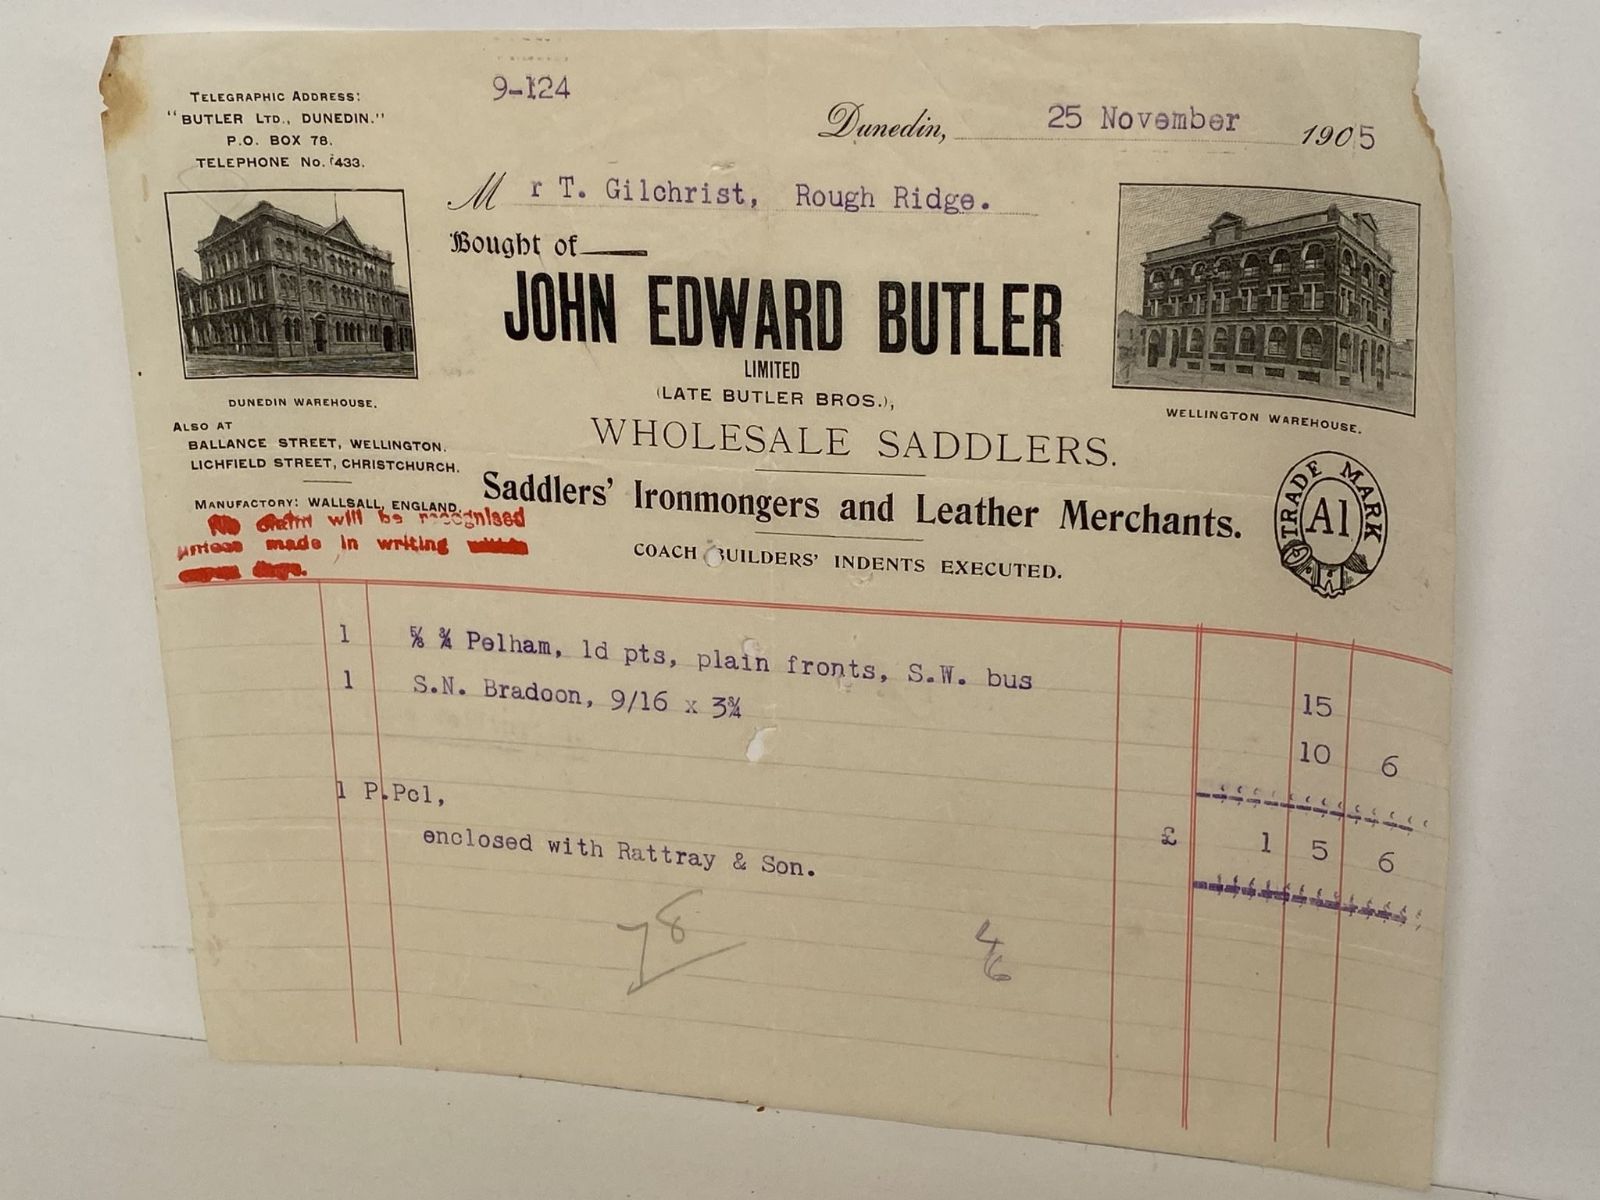 9-124
TELEGRAPHIC ADDRESS:
"BUTLER LTD., DUNEDIN."
P.O. BOX 78.
TELEPHONE No. 433.
Dunedin, 25 November 1905
Mr T. Gilchrist, Rough Ridge.
Bought of
JOHN EDWARD BUTLER
LIMITED
(LATE BUTLER BROS.),
WHOLESALE SADDLERS.
Saddlers' Ironmongers and Leather Merchants.
COACH BUILDERS' INDENTS EXECUTED.
DUNEDIN WAREHOUSE.
ALSO AT
BALLANCE STREET, WELLINGTON.
LICHFIELD STREET, CHRISTCHURCH.
MANUFACTORY: WALLSALL, ENGLAND.
No claim will be recognised
unless made in writing
days.
WELLINGTON WAREHOUSE.
TRADE MARK
A1
1 ⅝ ¾ Pelham, ld pts, plain fronts, S.W. bus 15
1 S.N. Bradoon, 9/16 x 3¾ 10 6
£ 1 5 6
1 P.Pcl,
enclosed with Rattray & Son.
78
4/6